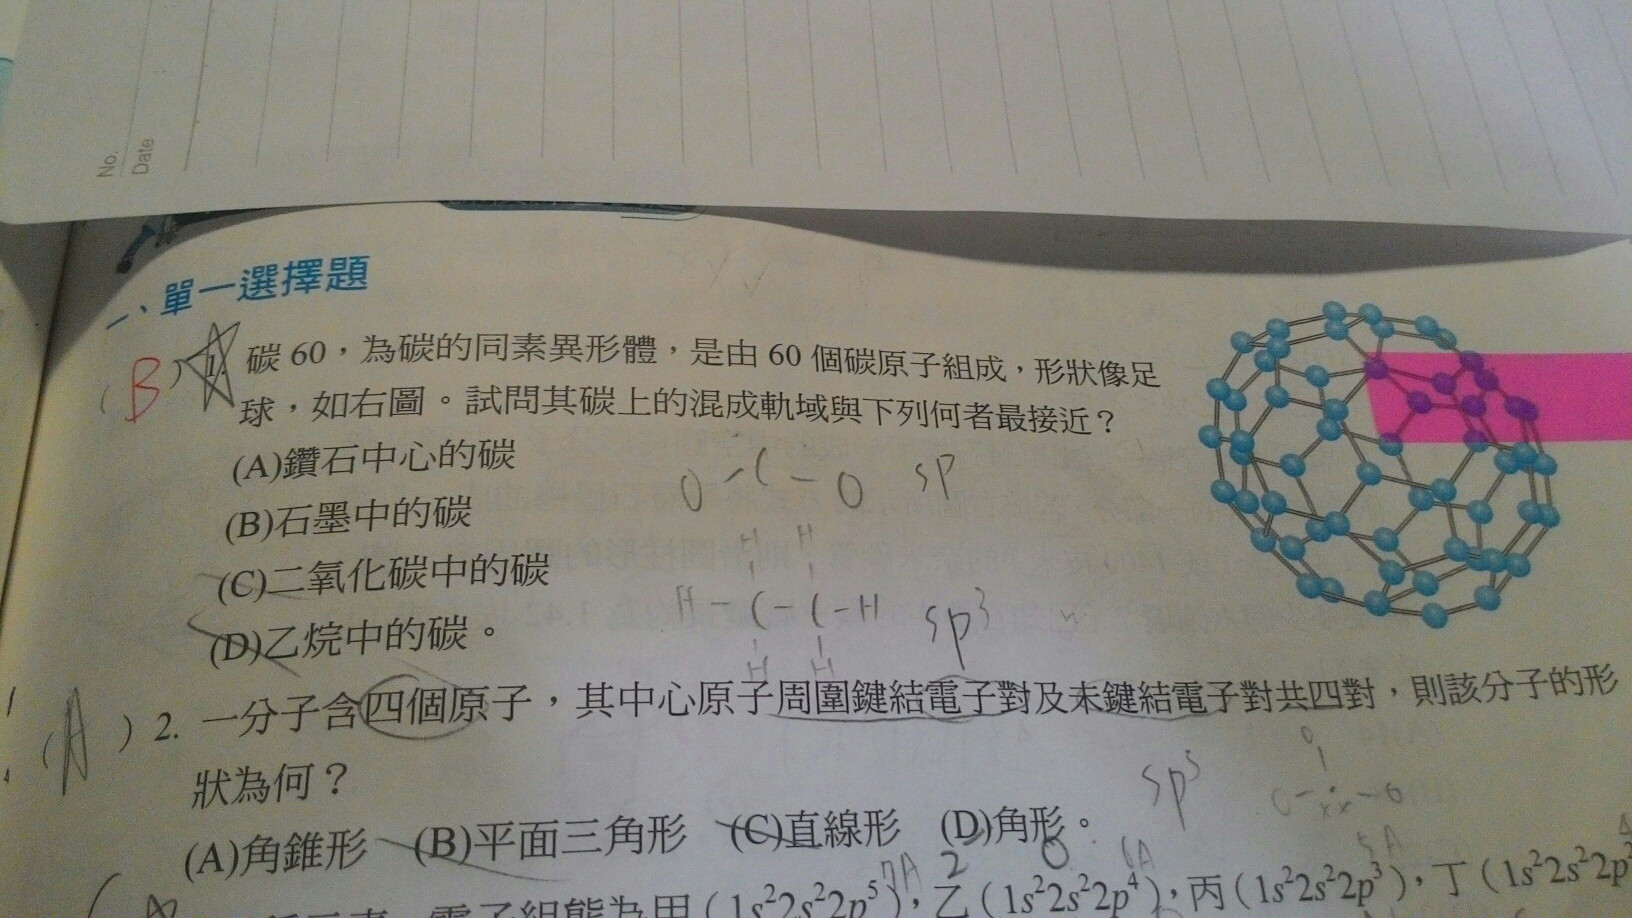 No.
Date
一、單一選擇題
(B) 1. 碳 60,為碳的同素異形體,是由 60 個碳原子組成,形狀像足
球,如右圖。試問其碳上的混成軌域與下列何者最接近?
(A)鑽石中心的碳
O-C-O sp
(B)石墨中的碳
H H
(C)二氧化碳中的碳
H-C-C-H sp³
(D)乙烷中的碳。
H H
(A) 2. 一分子含四個原子,其中心原子周圍鍵結電子對及未鍵結電子對共四對,則該分子的形
狀為何?
sp³
(A)角錐形 (B)平面三角形 (C)直線形 (D)角形。
7A 2 6A 5A
電子組態為甲(1s²2s²2p⁵),乙(1s²2s²2p⁴),丙(1s²2s²2p³),丁(1s²2s²2p²